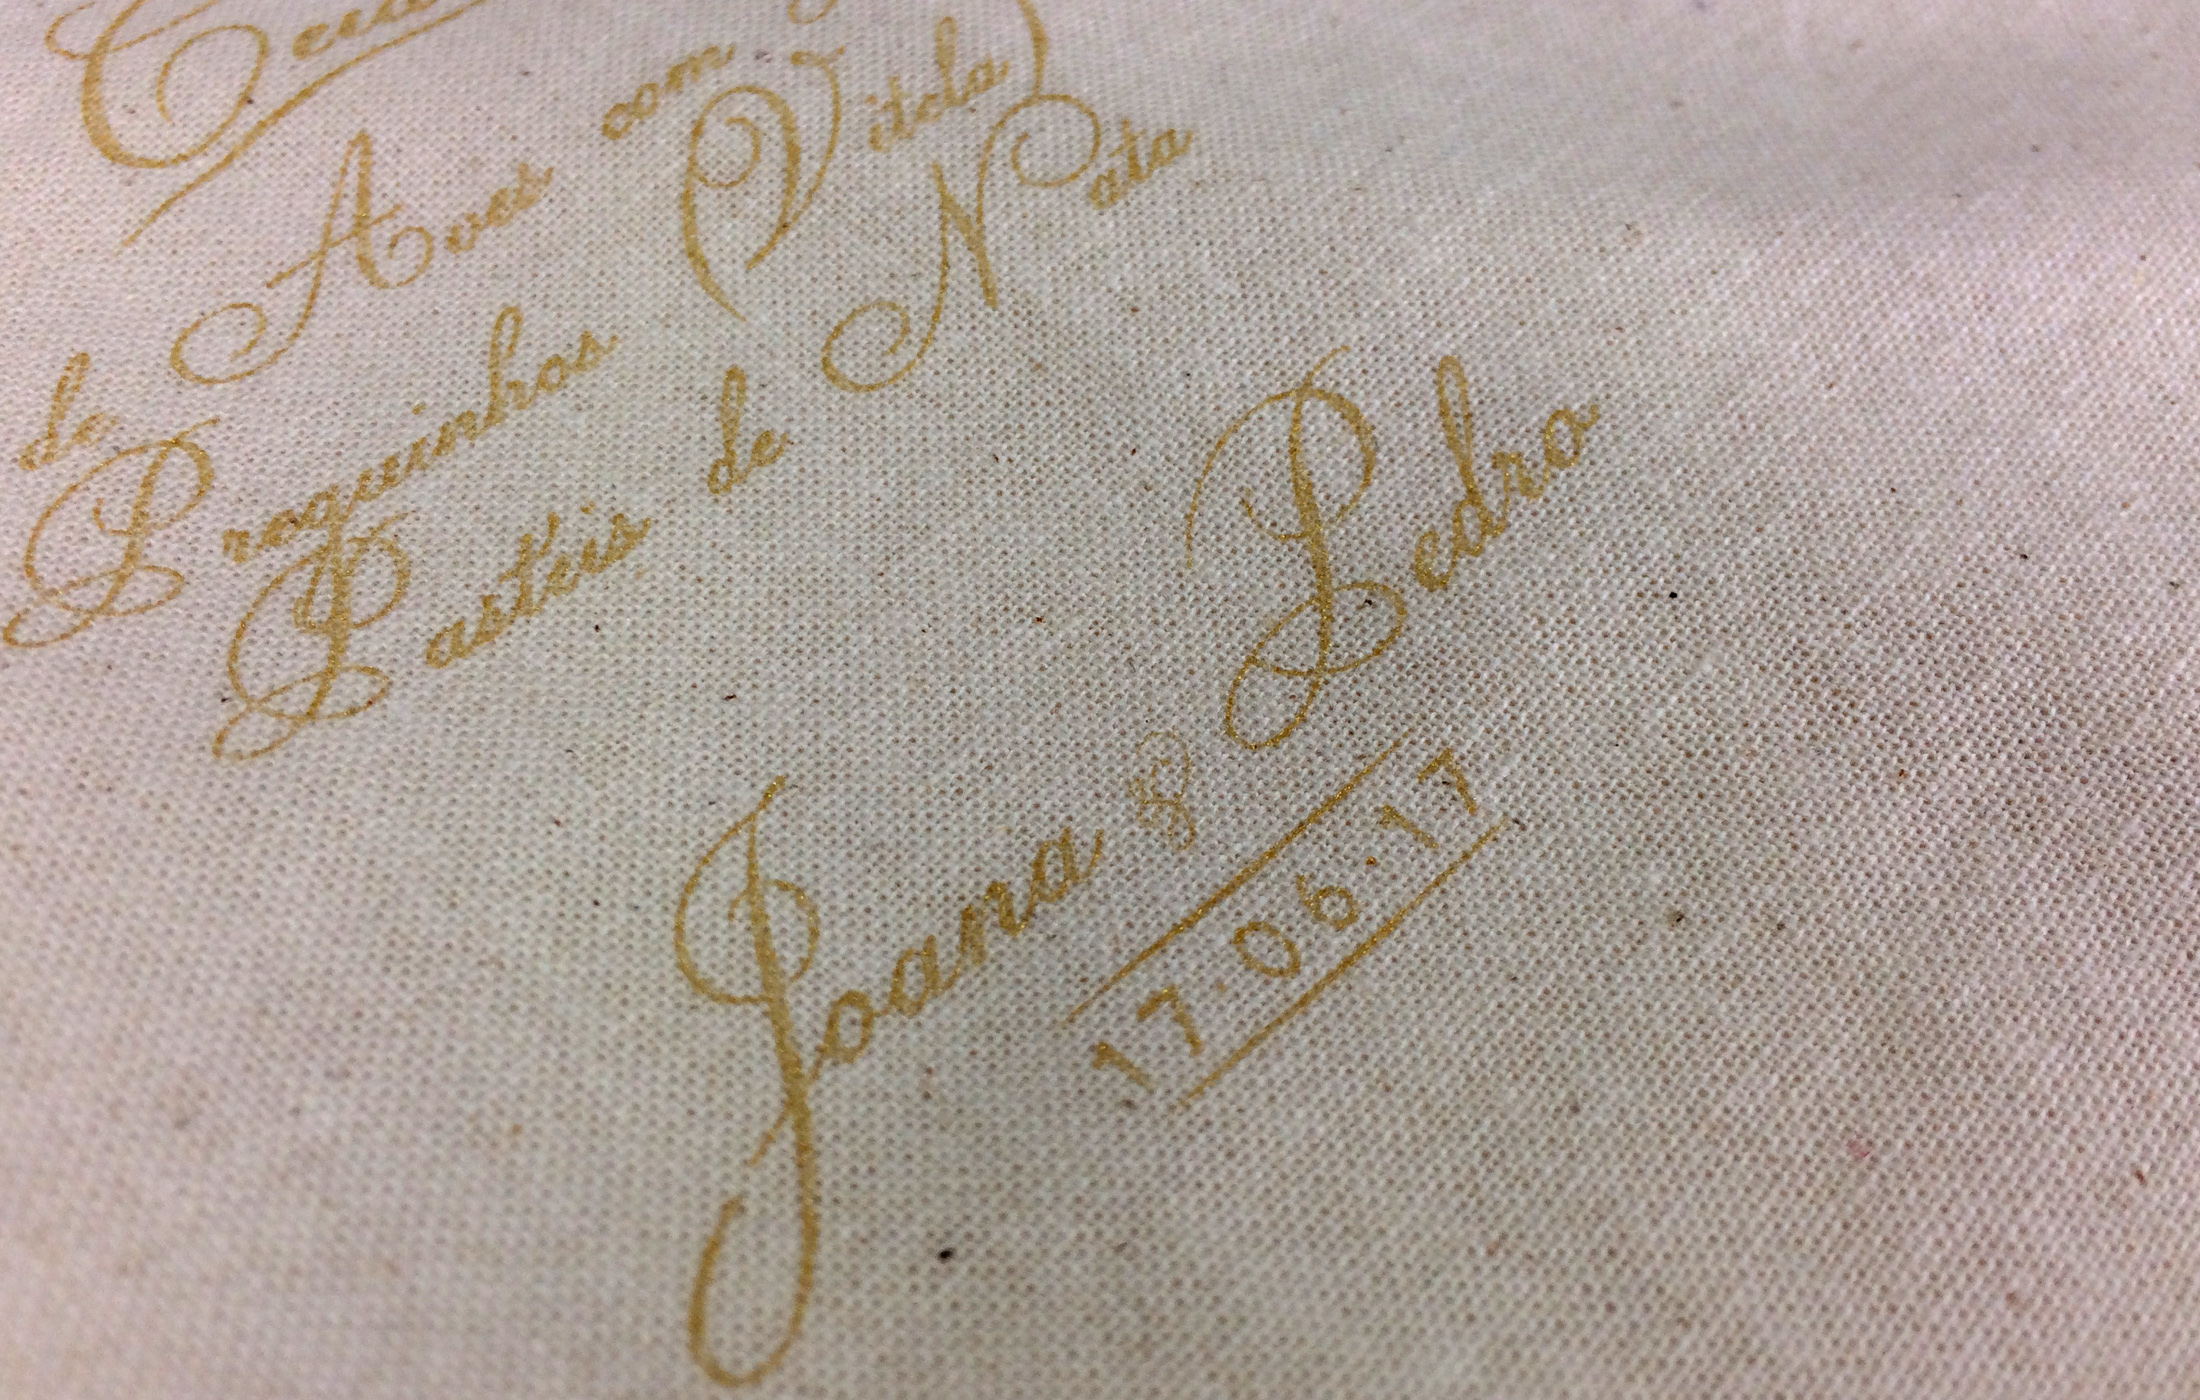 Ceia
de Aves com
Preguinhos (Vitela)
Pastéis de Nata
Joana & Pedro
17·06·17